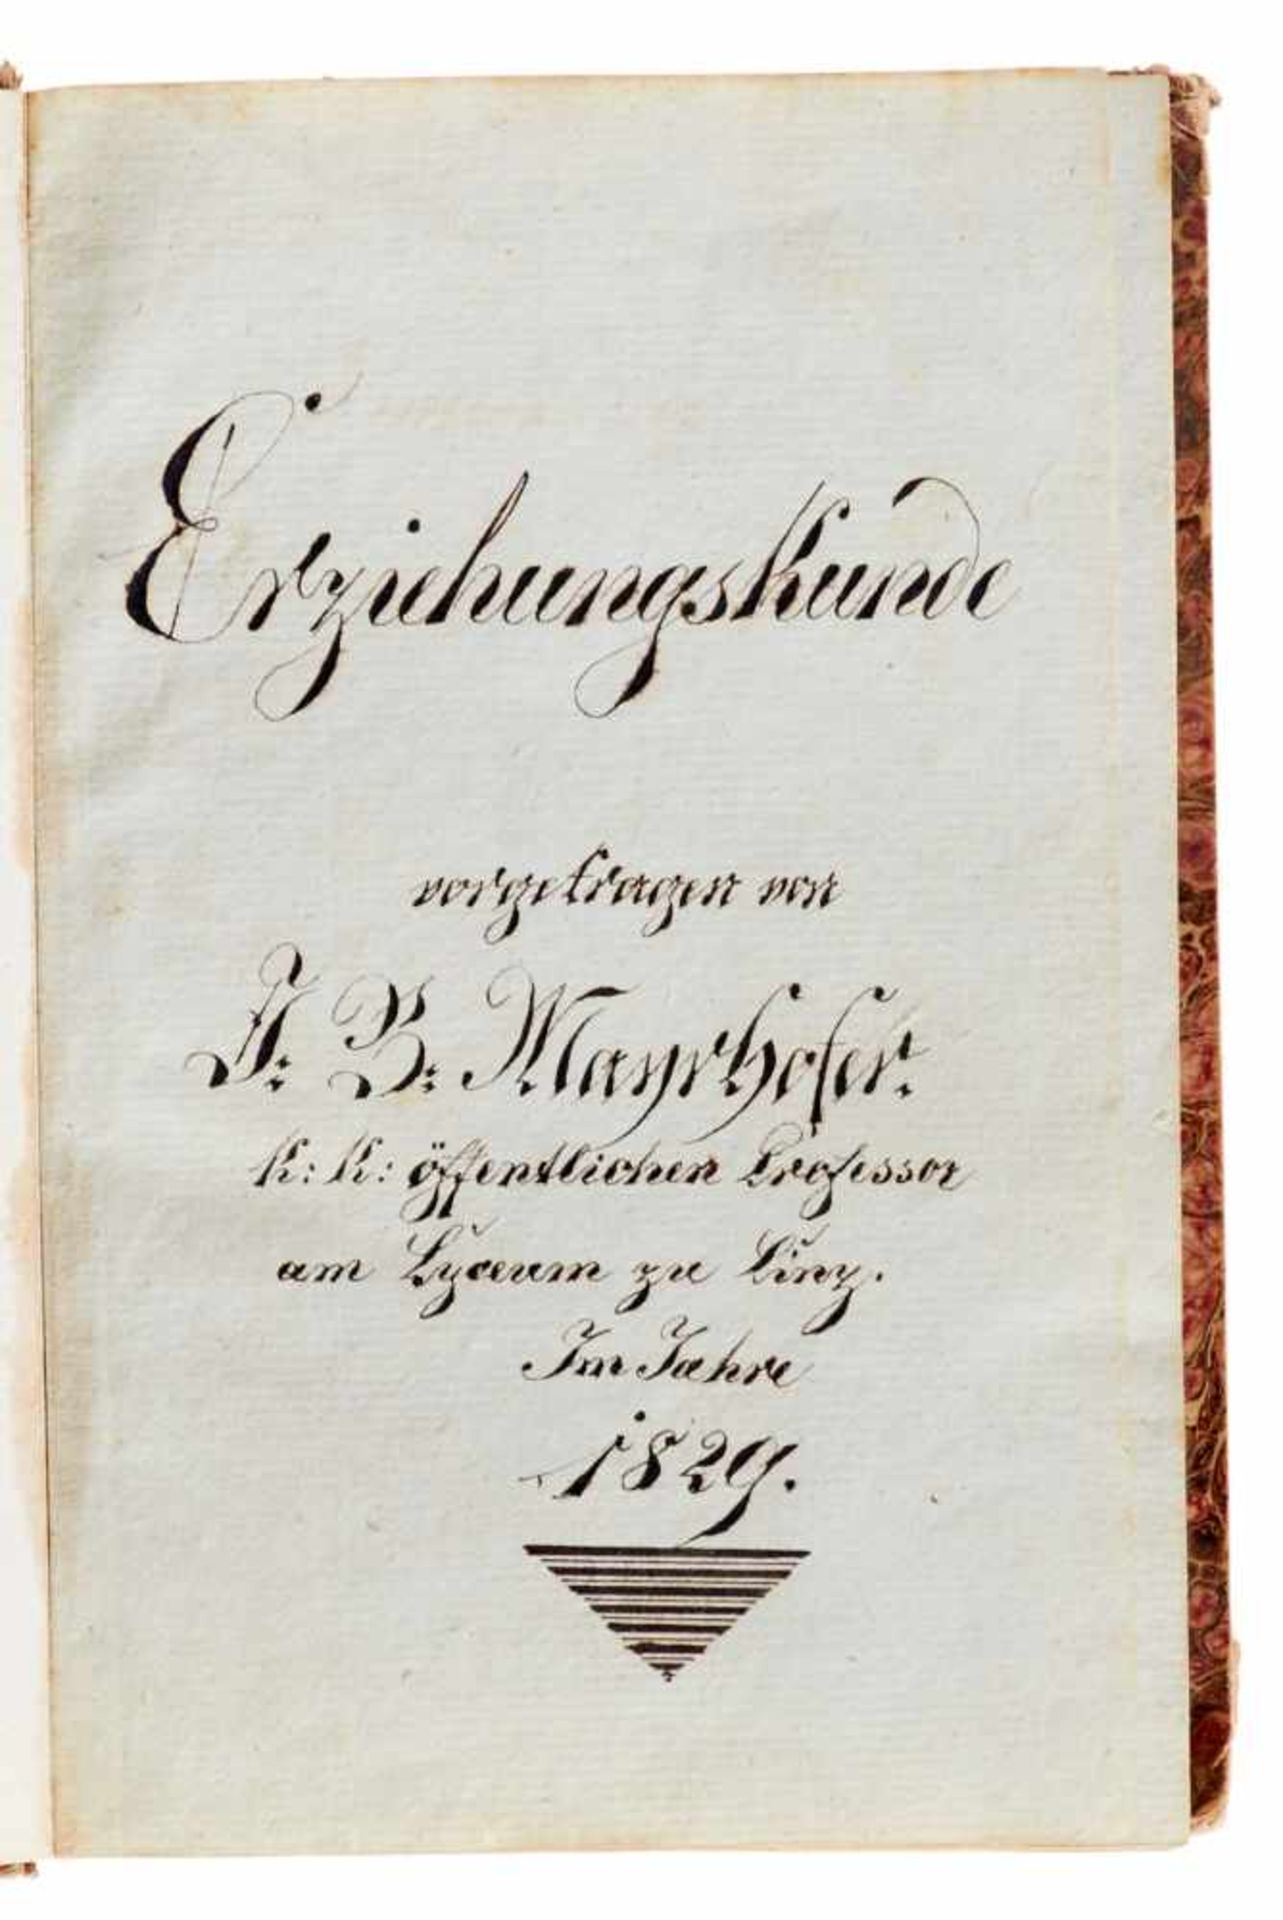 Erziehungskunde
vorgetragen von
J: B: Mayrhofer.
K: K: öffentlichen Professor
am Lyceum zu Linz.
Im Jahre
1829.